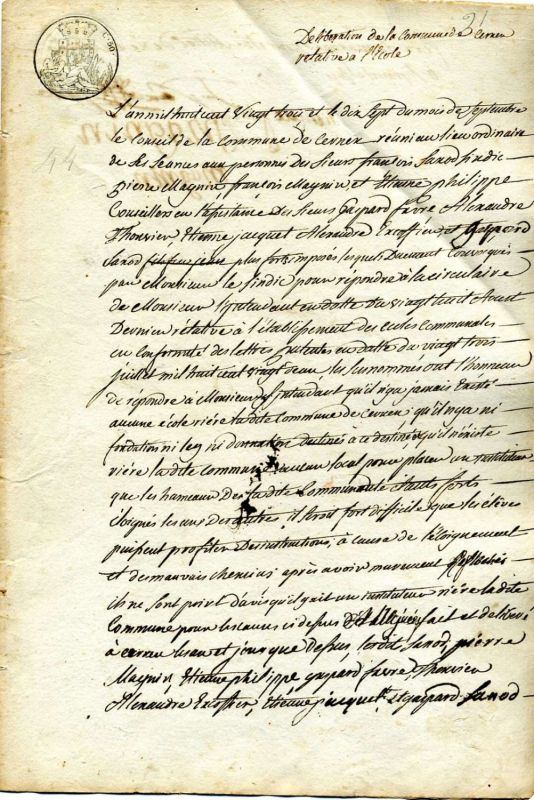 21
Deliberation de la Commune de Cernex
relative a l'Ecole
C. 50
44
L'an mil huit cent Vingt trois et le dix Sept du mois de Septembre
le Conseil de la Commune de Cernex réuni au lieu ordinaire
de ses Seances aux personnes des Sieurs françois Sanod sindic
pierre Magnin, françois Magnin, et Etienne philippe
Conseillers en l'assistance des Sieurs Gaspard favre Alexandre
Thouvier, Etienne jacquet Alexandre Excoffier et Gaspard
Sanod plus forts imposés lesquels Duement Convoqués
par Monsieur le Sindic pour répondre à la circulaire
de Monsieur l'Intendant en datte du vingt huit Aoust
Dernier relative à l'établissement des ecoles Communales
en conformité des lettres patentes en datte du vingt trois
juillet mil huit cent vingt deux les susnommés ont l'honneur
de repondre à Monsieur l'Intendant qu'il n'y a jamais Existé
aucune école rière la dite Commune de cernex qu'il n'y a ni
fondation ni leg ni donnation destinés à ce destin et qu'il n'éxiste
rière la dite commune aucun local pour placer un instituteur
que les hameaux de la dite Communauté étants forts
éloignés les uns des autres, il seroit fort difficile que les élèves
puissent profiter Des instructions, à cause de l'éloignement
et des mauvais chemins après avoir murement Réflechis
ils ne sont point d'avis qu'il y ait un instituteur rière la dite
Commune pour les causes ci dessus Alleguées, fait et déliberé
à cernex les an et jour que dessus, les dit Sanod, pierre
Magnin, Etienne philippe gaspard favre, Thouvier
Alexandre Excoffier, Etienne jacquet & Gaspard Sanod